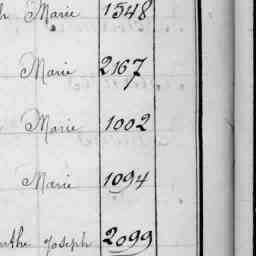 Marie 1548
Marie 2167
Marie 1002
Marie 1094
Joseph 2099